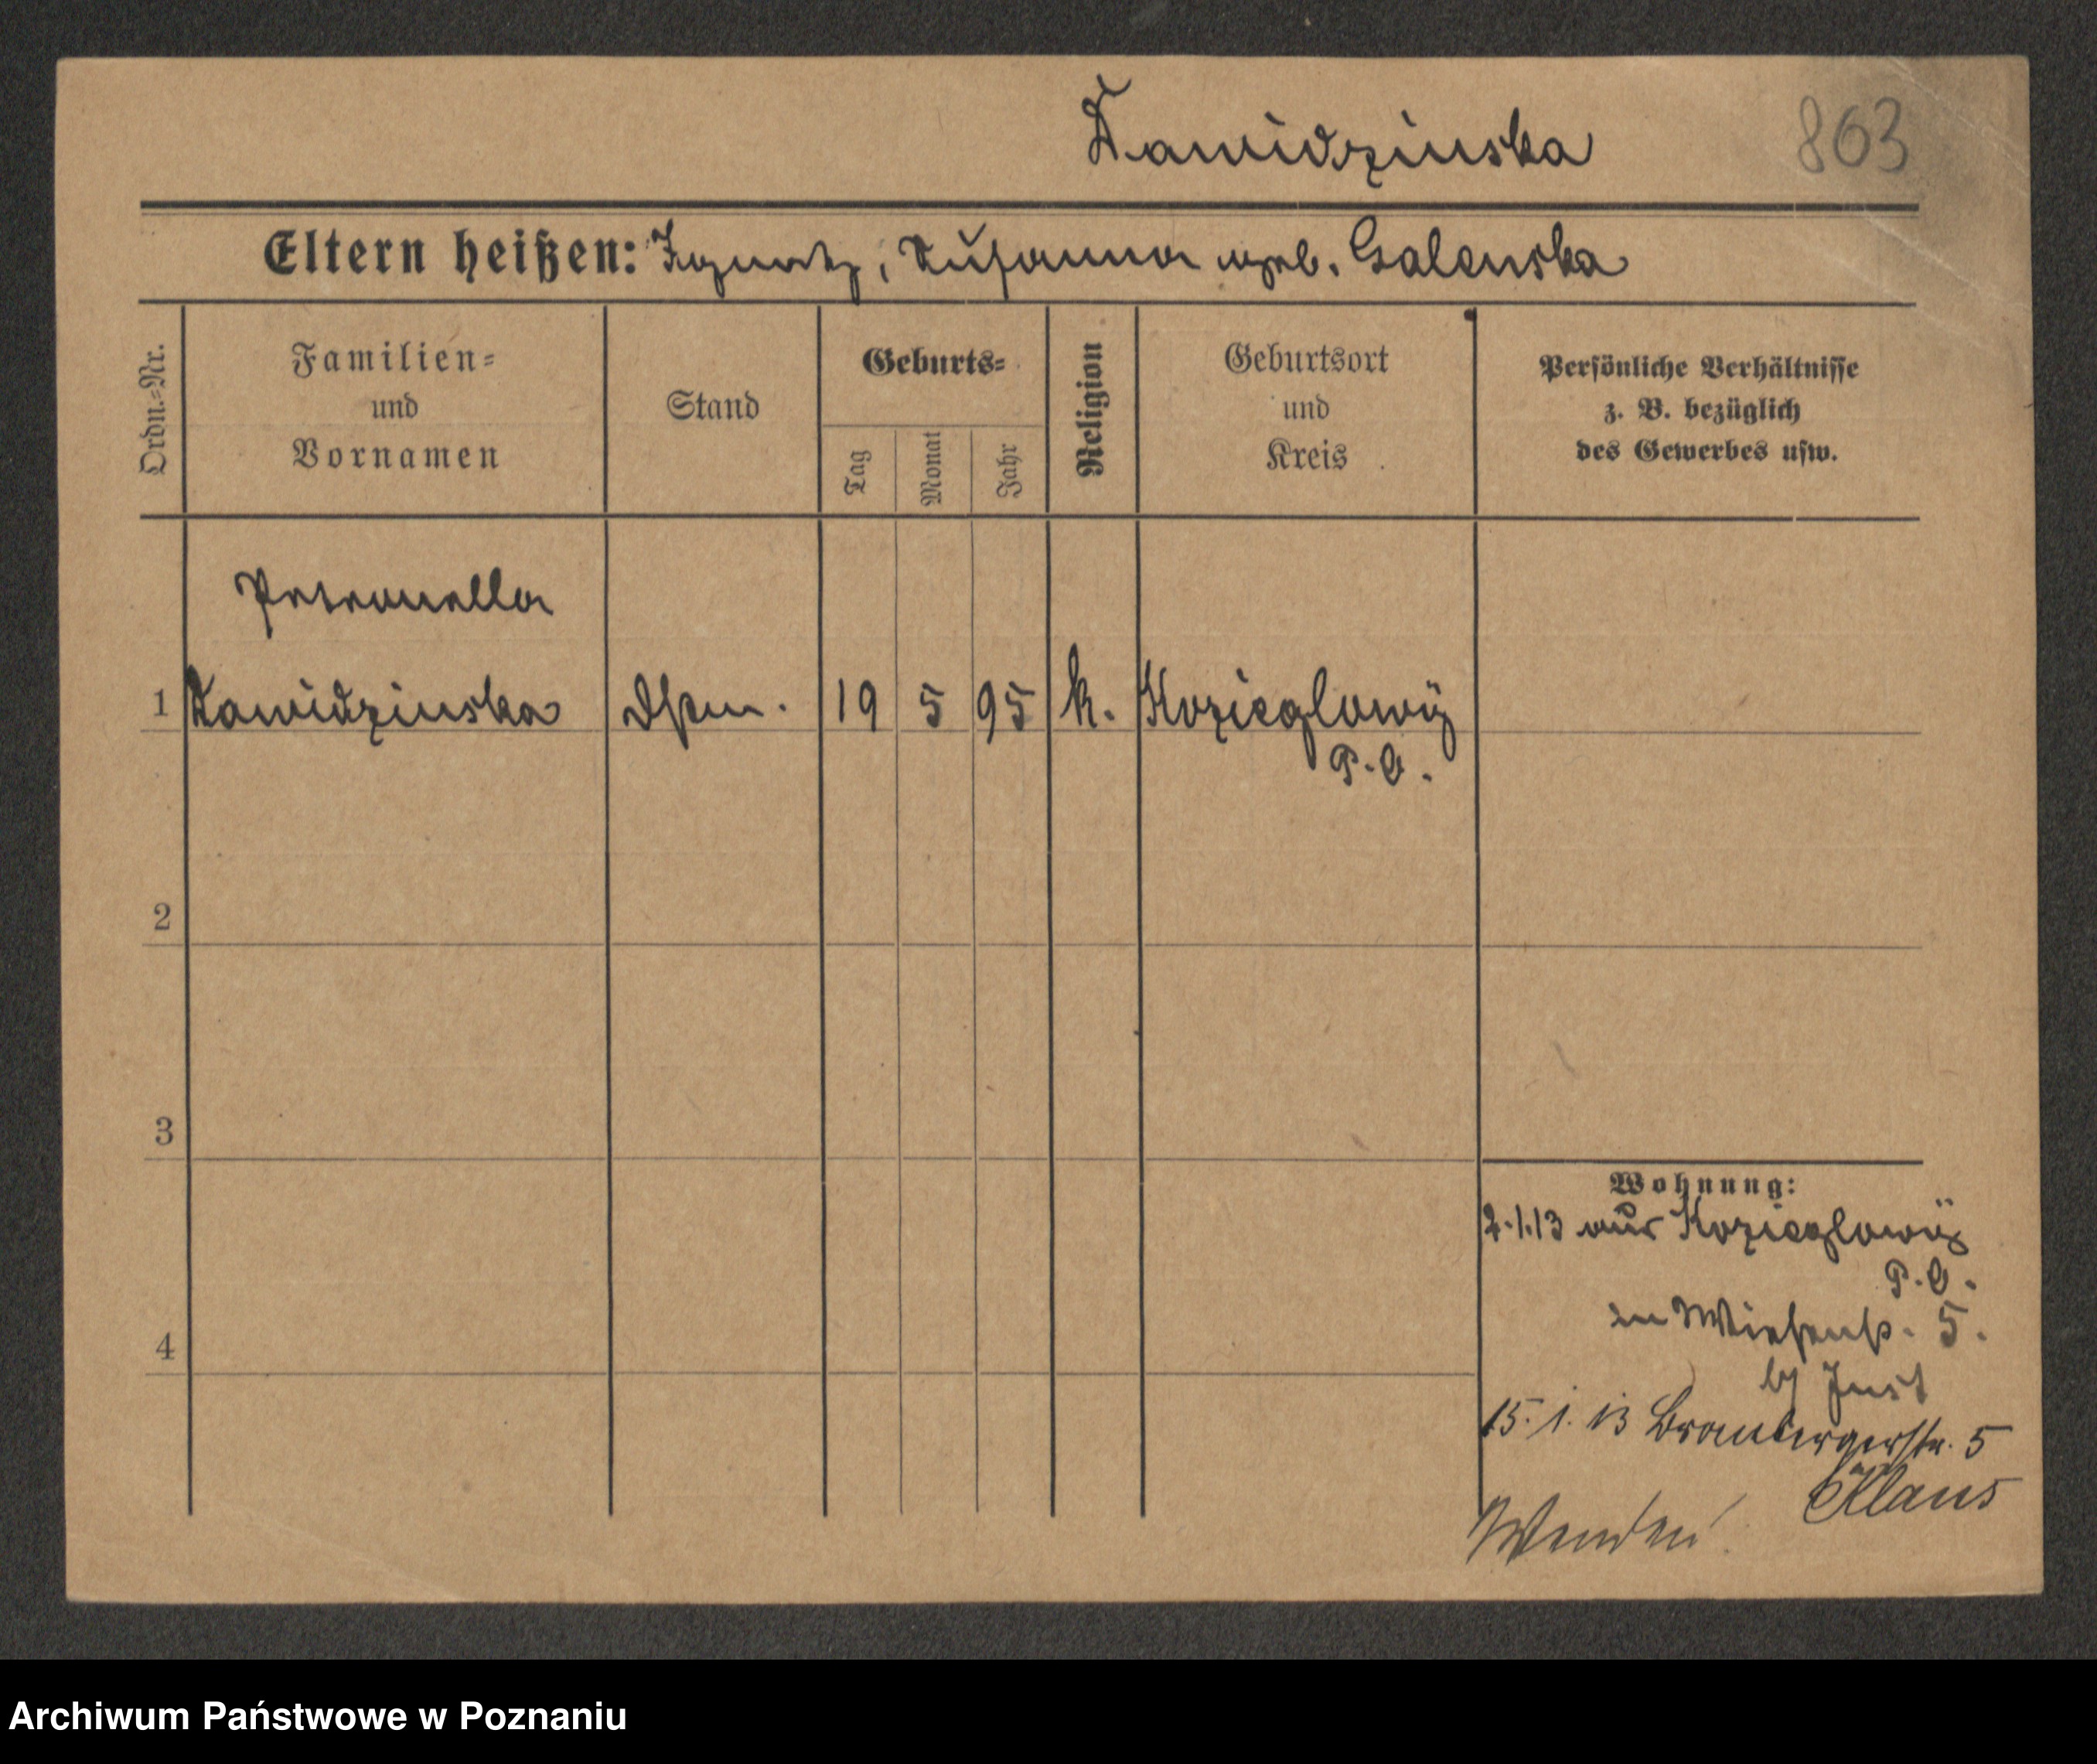 Kawidzinska 863
Eltern heißen: Ignatz, Susanna geb. Galenska
Ordn.=Nr.
Familien=
und
Vornamen
Stand
Geburts=
Tag
Monat
Jahr
Religion
Geburtsort
und
Kreis
Persönliche Verhältnisse
z. B. bezüglich
des Gewerbes usw.
Petronella
1 Kawidzinska 19 5 95 k. Koziegлowy
P.O.
2
3
4
Wohnung:
2.1.13 aus Koziegłowy
P.O.
in Wiesenstr. 5.
by Just
15.1.13 Brombergerstr. 5
Klaus
Wenden!
Archiwum Państwowe w Poznaniu